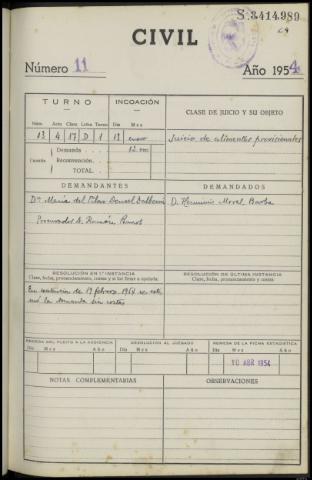 S.3414.989
CIVIL
Número 11 Año 1954
TURNO INCOACIÓN CLASE DE JUICIO Y SU OBJETO
Núm. Acto Clase Letra Turno Día Mes
13 4 17 D 1 12 enero Juicio de alimentos provisionales
Cuantía Demanda 12.000
Reconvención.
TOTAL.
DEMANDANTES DEMANDADOS
Dª María del Pilar D. Herminio Moral Barba
Procurador D. Ramón
RESOLUCIÓN EN 1.ª INSTANCIA RESOLUCIÓN DE ÚLTIMA INSTANCIA
Clase, fecha, pronunciamiento, costas y si fué firme o apelada. Clase, fecha, pronunciamiento, costas.
En sentencia de 19 febrero 1954 se estimó la demanda sin costas
REMESA DEL PLEITO A LA AUDIENCIA DEVOLUCIÓN AL JUZGADO REMESA DE LA FICHA ESTADÍSTICA
Día Mes Año Día Mes Año Día Mes Año
10 ABR 1954
NOTAS COMPLEMENTARIAS OBSERVACIONES